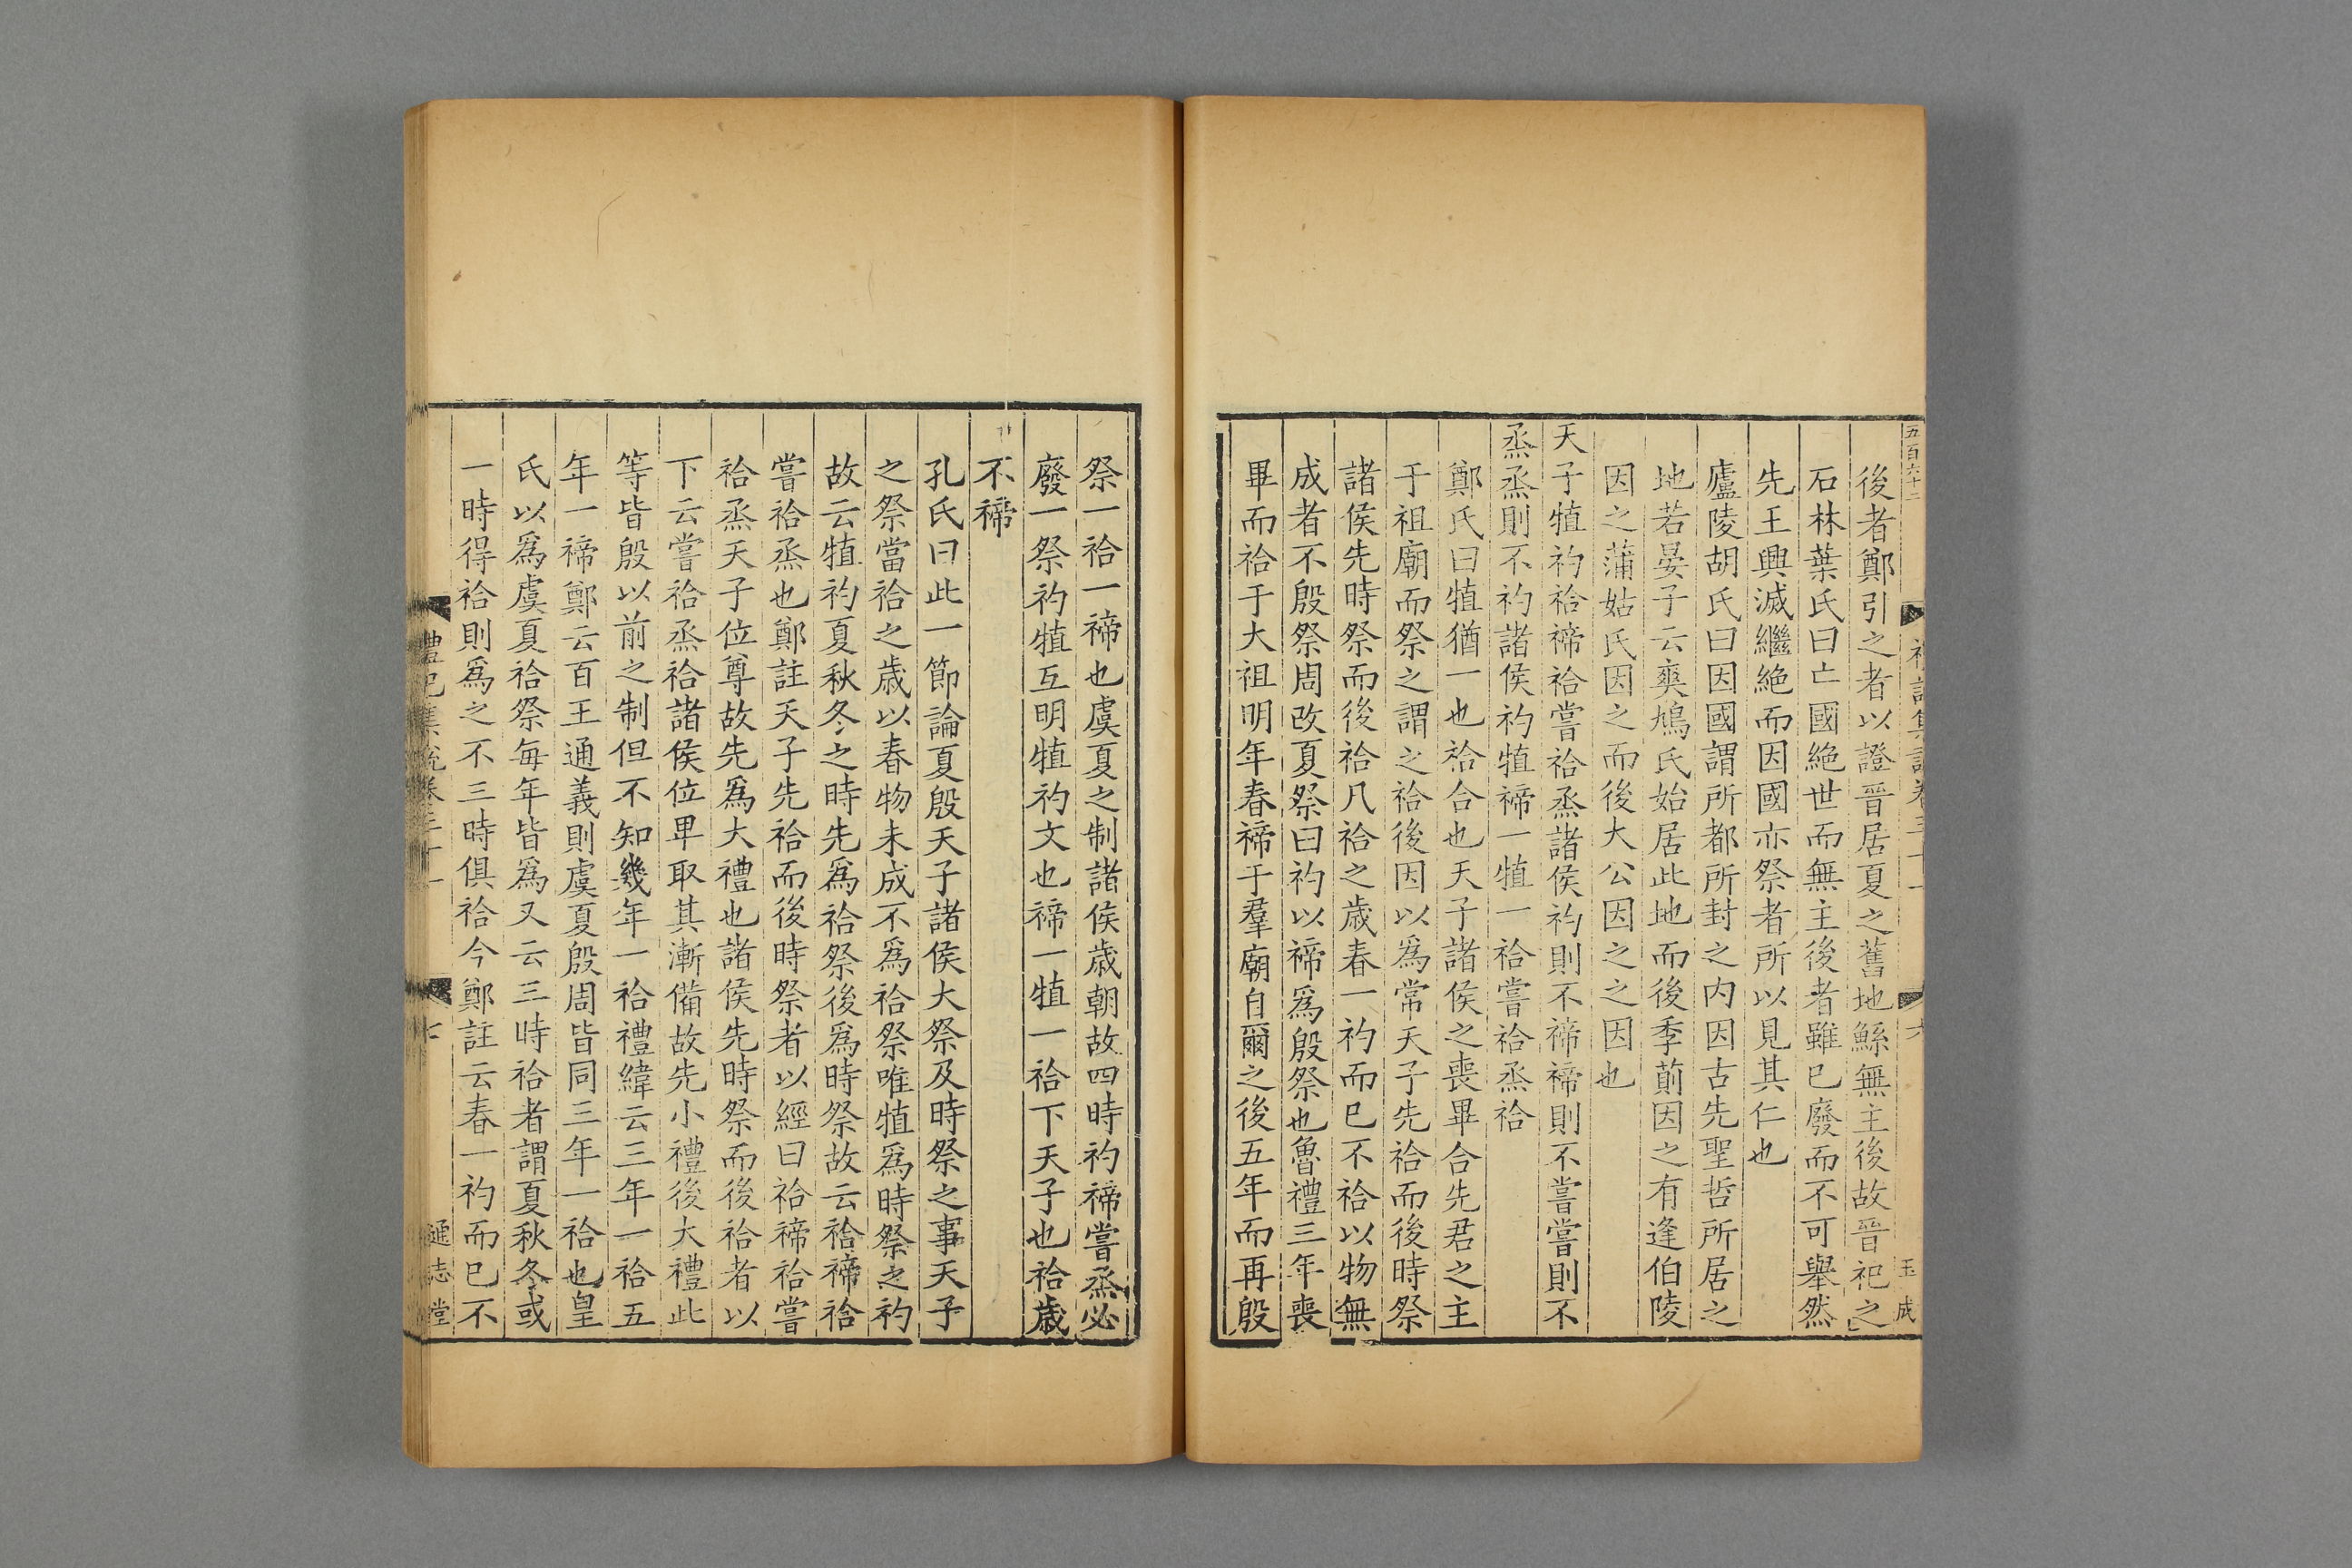 五百六十二
禮記集說卷三十一
六
玉成
後者鄭引之者以證晉居夏之舊地鯀無主後故晉祀之
石林葉氏曰亡國絶世而無主後者雖已廢而不可舉然
先王興滅繼絶而因國亦祭者所以見其仁也
廬陵胡氏曰因國謂所都所封之内因古先聖哲所居之
地若晏子云爽鳩氏始居此地而後季萴因之有逢伯陵
因之蒲姑氏因之而後大公因之之因也
天子犆礿祫禘祫嘗祫烝諸侯礿則不禘禘則不嘗嘗則不
烝烝則不礿諸侯礿犆禘一犆一祫嘗祫烝祫
鄭氏曰犆猶一也祫合也天子諸侯之喪畢合先君之主
于祖廟而祭之謂之祫後因以爲常天子先祫而後時祭
諸侯先時祭而後祫凡祫之歲春一礿而已不祫以物無
成者不殷祭周改夏祭曰礿以禘爲殷祭也魯禮三年喪
畢而祫于大祖明年春禘于羣廟自爾之後五年而再殷
祭一祫一禘也虞夏之制諸侯歲朝故四時礿禘嘗烝必
廢一祭礿犆互明犆礿文也禘一犆一祫下天子也祫歲
不禘
孔氏曰此一節論夏殷天子諸侯大祭及時祭之事天子
之祭當祫之歲以春物未成不爲祫祭唯犆爲時祭之礿
故云犆礿夏秋冬之時先爲祫祭後爲時祭故云祫禘祫
嘗祫烝也鄭註天子先祫而後時祭者以經曰祫禘祫嘗
祫烝天子位尊故先爲大禮也諸侯先時祭而後祫者以
下云嘗祫烝祫諸侯位卑取其漸備故先小禮後大禮此
等皆殷以前之制但不知幾年一祫禮緯云三年一祫五
年一禘鄭云百王通義則虞夏殷周皆同三年一祫也皇
氏以爲虞夏祫祭每年皆爲又云三時祫者謂夏秋冬或
一時得祫則爲之不三時俱祫今鄭註云春一礿而已不
禮記集說卷三十一
七
通志堂